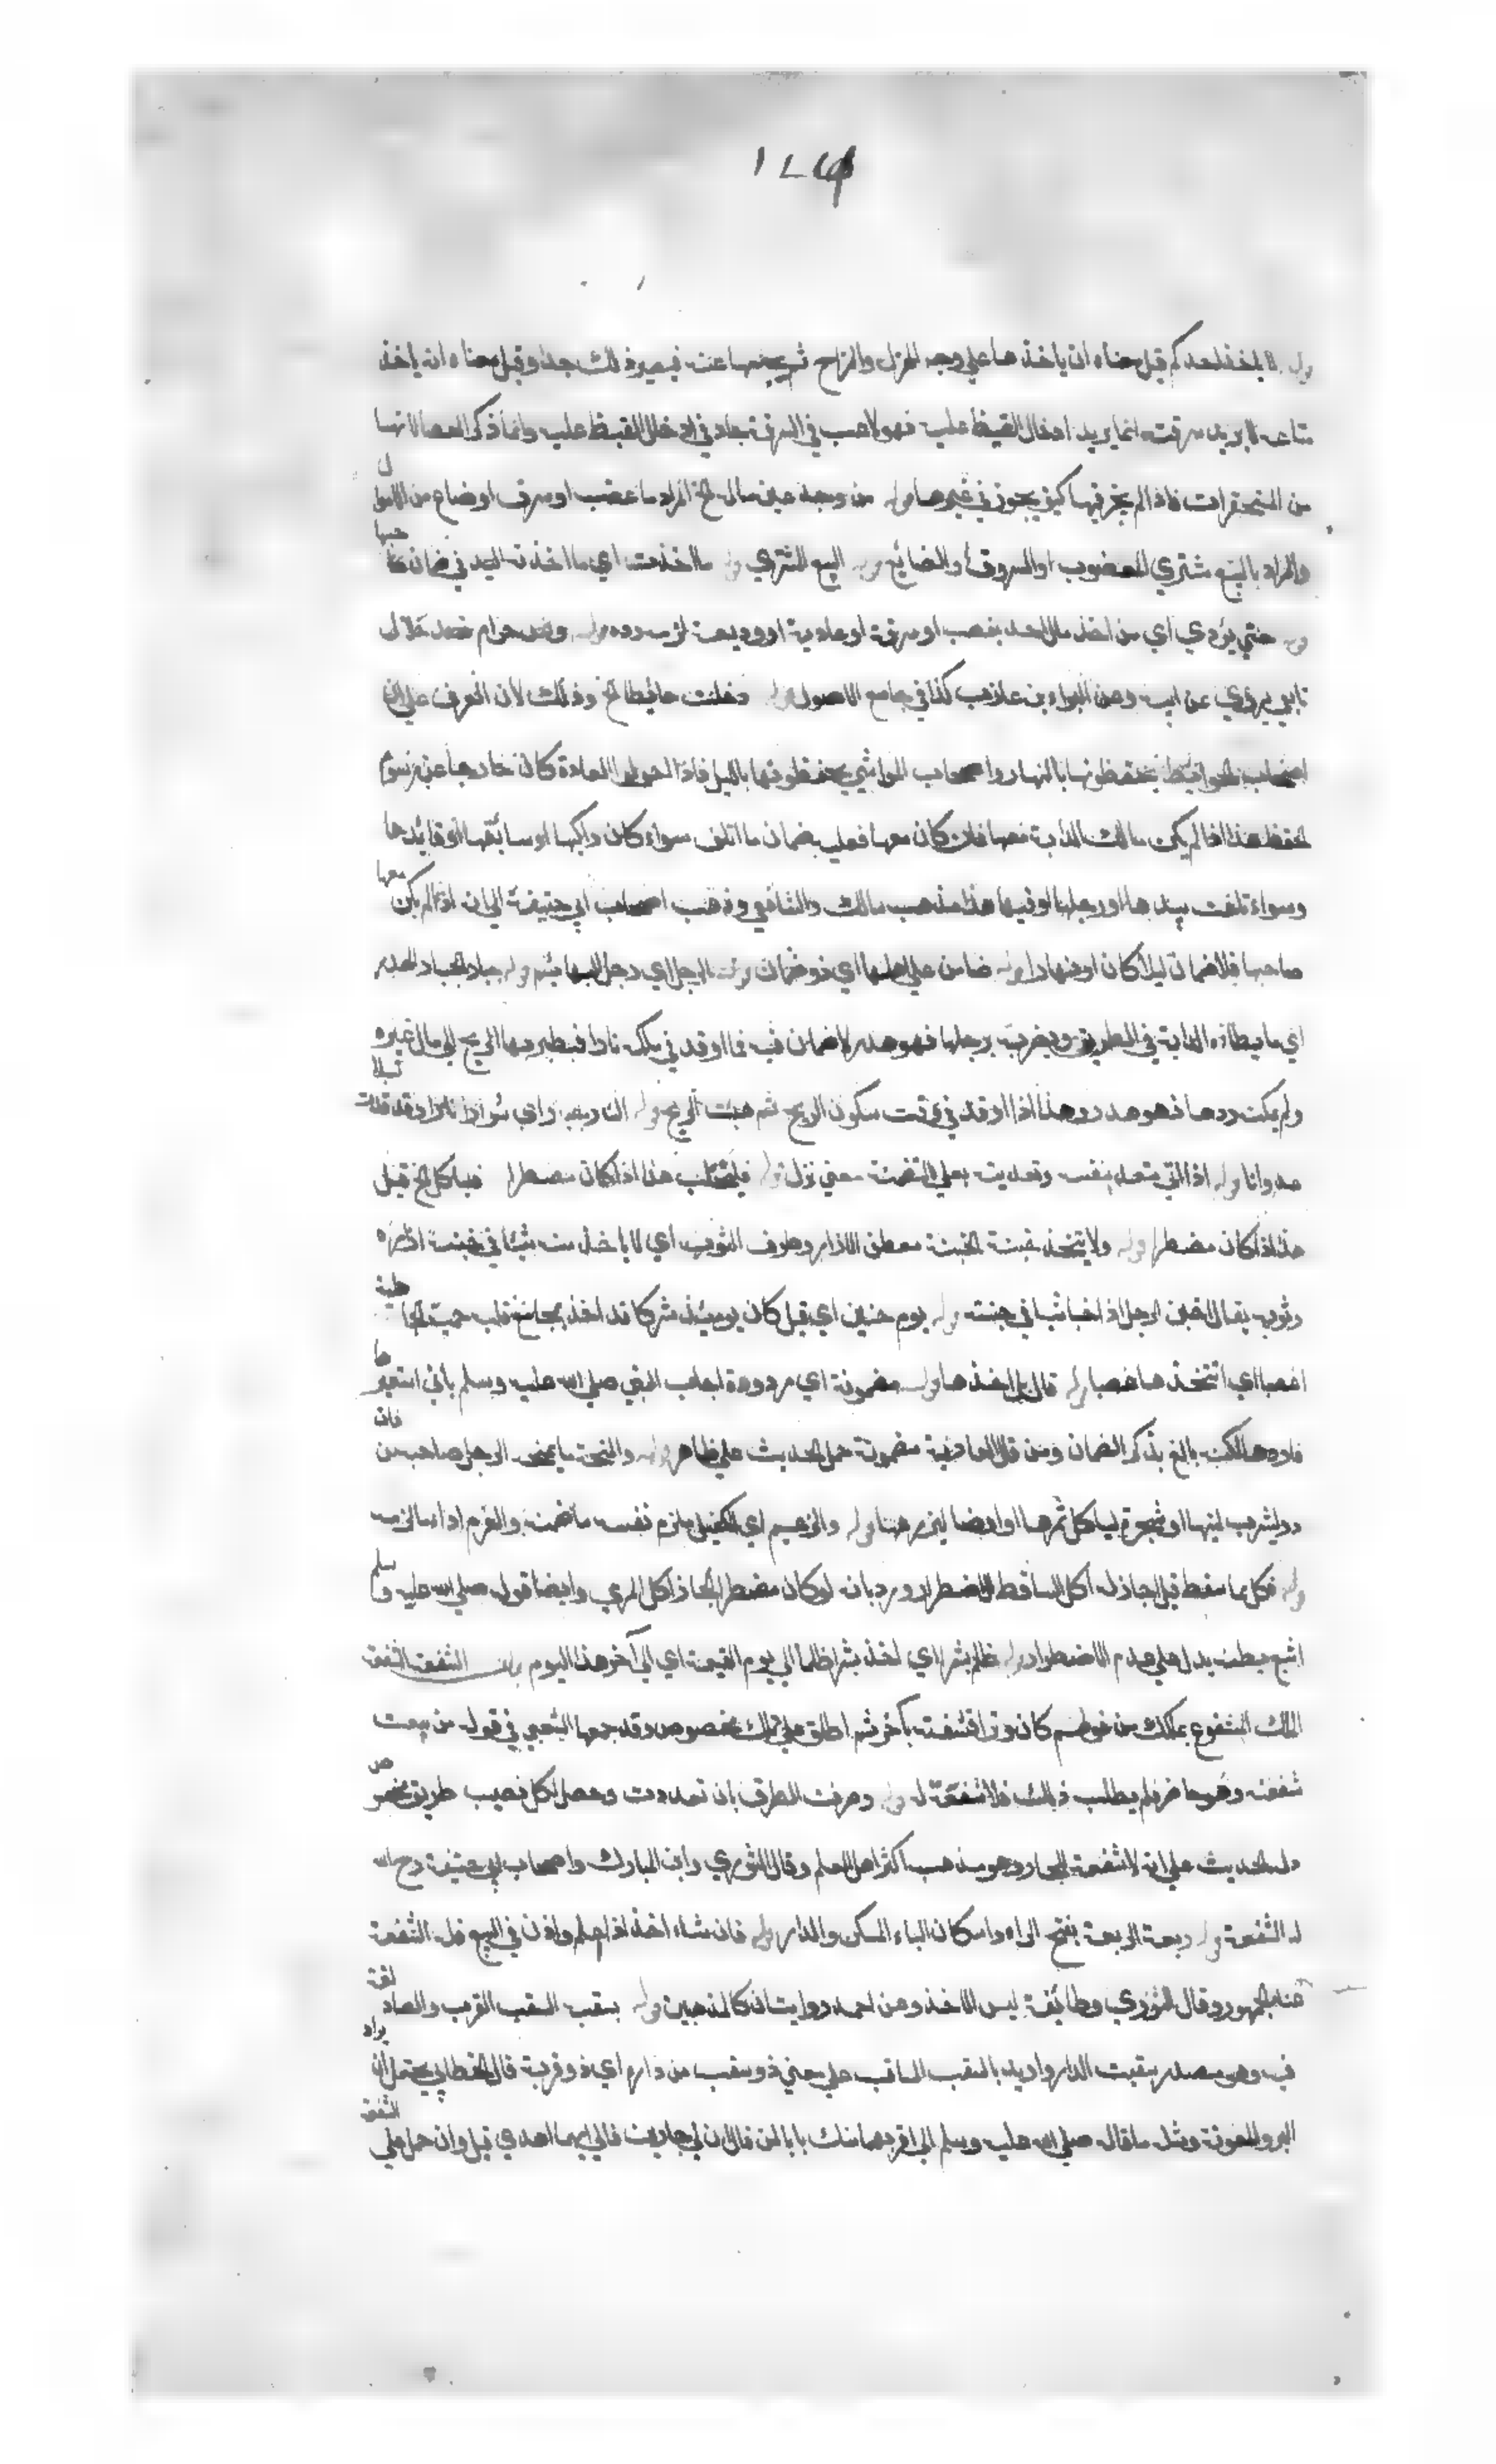 قوله لا ياخذ احدكم قيل معناه ان ياخذها علي وجه الهزل والمزاح ثم يحبسها عنه فيصير ذلك جدا وقيل معناه ان ياخذ
متاعه لا يريد سرقته انما يريد ادخال الغيظ عليه فهو لاعب في السرقة جاد في ادخال الغيظ عليه وانما ذكر العصا لانها
من المحقرات فاذا لم يجز فيها كيف يجوز في غيرها قوله من وجد عين ماله الخ المراد ما غصب او سرق او ضاع من الاموال
والمراد بالبيع مشتري المغصوب او المسروق او الضائع قوله البيع المشتري قوله ما اخذت اي ما اخذته اليد في ضمان صاحبها
قوله حتي يؤدي اي من اخذ مال احد بغصب او سرقة او عارية او وديعة لزمه رده قوله وعن حرام
تابعي يروي عن ابيه وعن البراء بن عازب كذا في جامع الاصول قوله دخلت حائطا الخ وذلك لان العرف علي ان
اصحاب الحوائط يحفظونها بالنهار واصحاب المواشي يحفظونها بالليل فاذا حولوا العادة كان خارجا عن رسوم
الحفظ هذا اذا لم يكن مالك الدابة معها فان كان معها فعليه ضمان ما اتلف سواء كان راكبها او سائقها او قائدها
وسواء تلفت بيدها او رجلها او فيها هذا مذهب مالك والشافعي وذهب اصحاب ابي حنيفة الي انه اذا لم يكن معها
صاحبها فلا ضمان ليلا كان او نهارا قوله ضامن علي اهلها اي ذو ضمان قوله الرجل اي رجل البهائم قوله جبار الجبار الهدر
اي ما يطأه الدابة في الطريق ويضربه برجلها فهو هدر لا ضمان فيه فما اوقد في ملكه نارا فيطير بها الريح الي مال غيره
ولم يمكنه ردها فهو هدر وهذا اذا اوقد في وقت سكون الريح ثم هبت الريح قوله
قوله اذا اتي متعد بنفسه وتعديته بعلي لتضمنه معني نزل قوله فليحتلب هذا اذا كان مضطرا فياكل الخ قيل
هذا اذا كان مضطرا قوله ولا يتخذ خبنة الخبنة معطف الازار وطرف الثوب اي لا ياخذ منه شيئا في خبنة ازاره
وثوبه يقال اخبن الرجل اذا خبا شيا في خبنته قوله يوم حنين اي قيل كان يومئذ مشركا قد اخذ بمجامع قلبه حمية الجاهلية
اغصبا اي اتتخذها غصبا قوله قال بل اخذها قوله مضمونة اي مردودة اجاب النبي صلي الله عليه وسلم باني استعيرها
فاردها لكنه بالغ بذكر الضمان ومن قال العارية مضمونة حمل الحديث علي ظاهره قوله والمنحة ما يمنحه الرجل صاحبه من
در ليشرب لبنها او شجرة لياكل ثمرها او ارضا ليزرعها قوله والزعيم اي الكفيل ملزم نفسه ما ضمنه والغرم اداء ما لزمه
قوله فكل مما سقط قيل اجاز له اكل الساقط للاضطرار ورد بانه لو كان مضطرا لجاز اكل المرمي وايضا قوله صلي الله عليه وسلم
اشبع بطنه يدل علي عدم الاضطرار قوله ظلم شبرا اي اخذ شبرا ظلما الي يوم القيمة اي الي آخر هذا اليوم باب الشفعة الشفعة
الملك المشفوع بملكك من قولهم كان وترا فشفعته بآخر ثم اطلق علي تملك مخصوص وقد جمعها الشعبي في قوله من بيعت
شفعته وهو حاضر فلم يطلب ذلك فلا شفعة له قوله وصرفت الطرق بان تعددت وحصل لكل نصيب طريق مخصوص
دل الحديث علي انه لا شفعة للجار وهو مذهب اكثر اهل العلم وقال الثوري وابن المبارك واصحاب ابي حنيفة رح
له الشفعة قوله ربعة الربعة بفتح الراء واسكان الباء المسكن والدار قوله فان شاء اخذ اذا اعلم واذن في البيع فله الشفعة
عند الجمهور وقال الثوري وطائفة ليس الاخذ وعن احمد روايتان كالمذهبين قوله بسقبه السقب القرب والصاد لغة
فيه وهو مصدر سقبت الدار واريد بالسقب الساقب علي معني ذو سقب من داره اي ذو قربة قال الخطابي يحتمل ان يراد
البر والمعونة ومثله ما قال صلي الله عليه وسلم الي اقربهما منك بابا لمن قال ان لي جارين فالي ايهما اهدي قيل وان حمل علي الشفعة